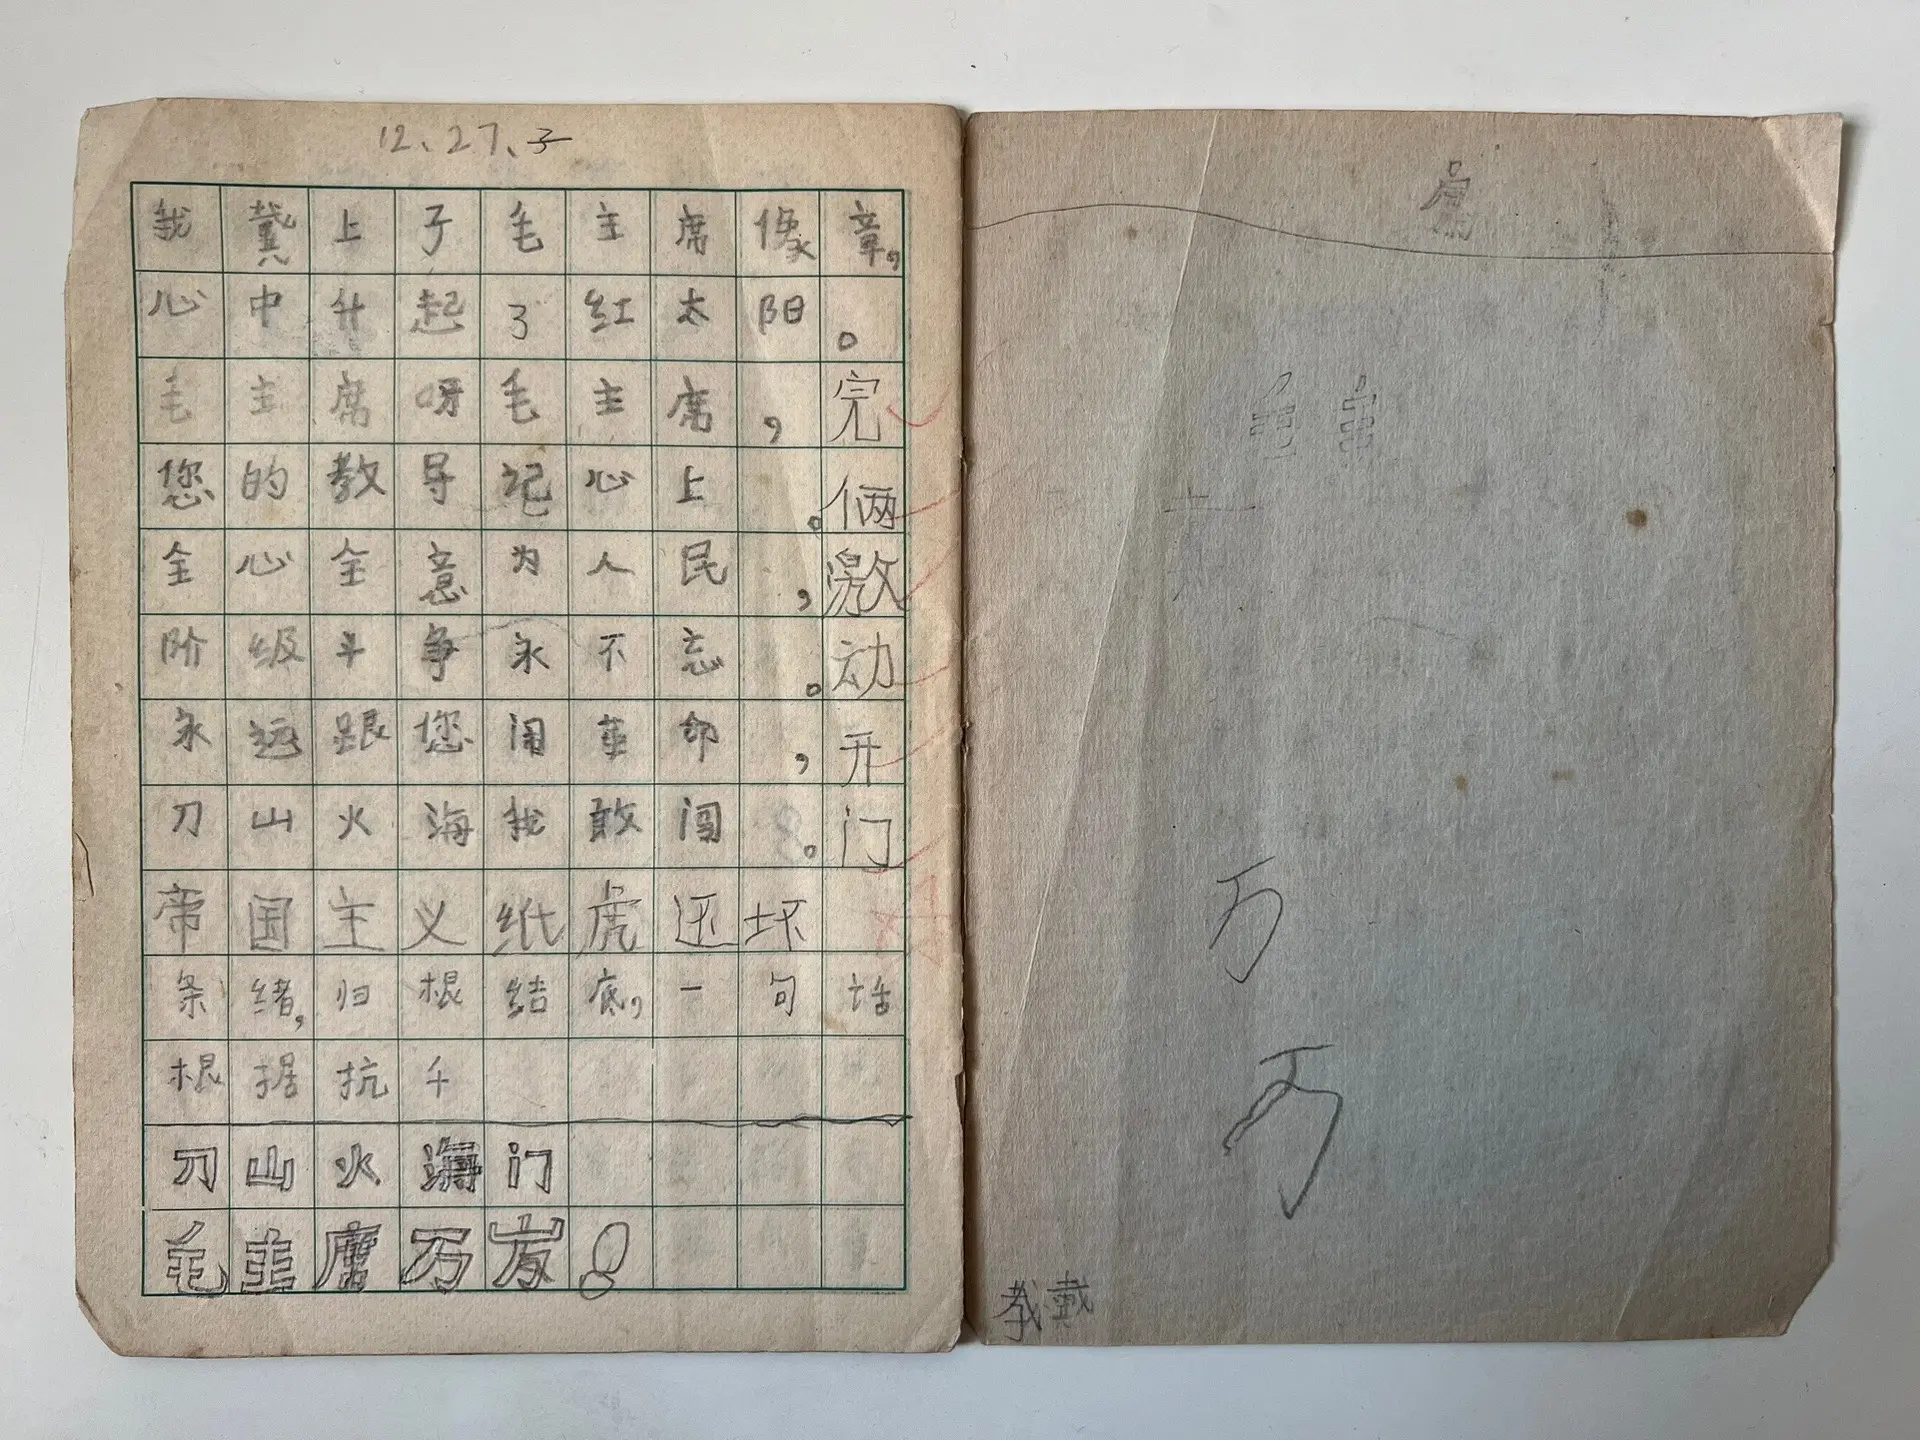 12、27、子
我戴上了毛主席像章，
心中升起了红太阳。
毛主席呀毛主席，完
您的教导记心上。俩
全心全意为人民，激
阶级斗争永不忘。动
永远跟您闹革命，开
刀山火海我敢闯。门
帝国主义纸虎还坏
条绪，归根结底，一句话
根据抗千
刀山火海门
毛主席万岁！
毛主
万
万